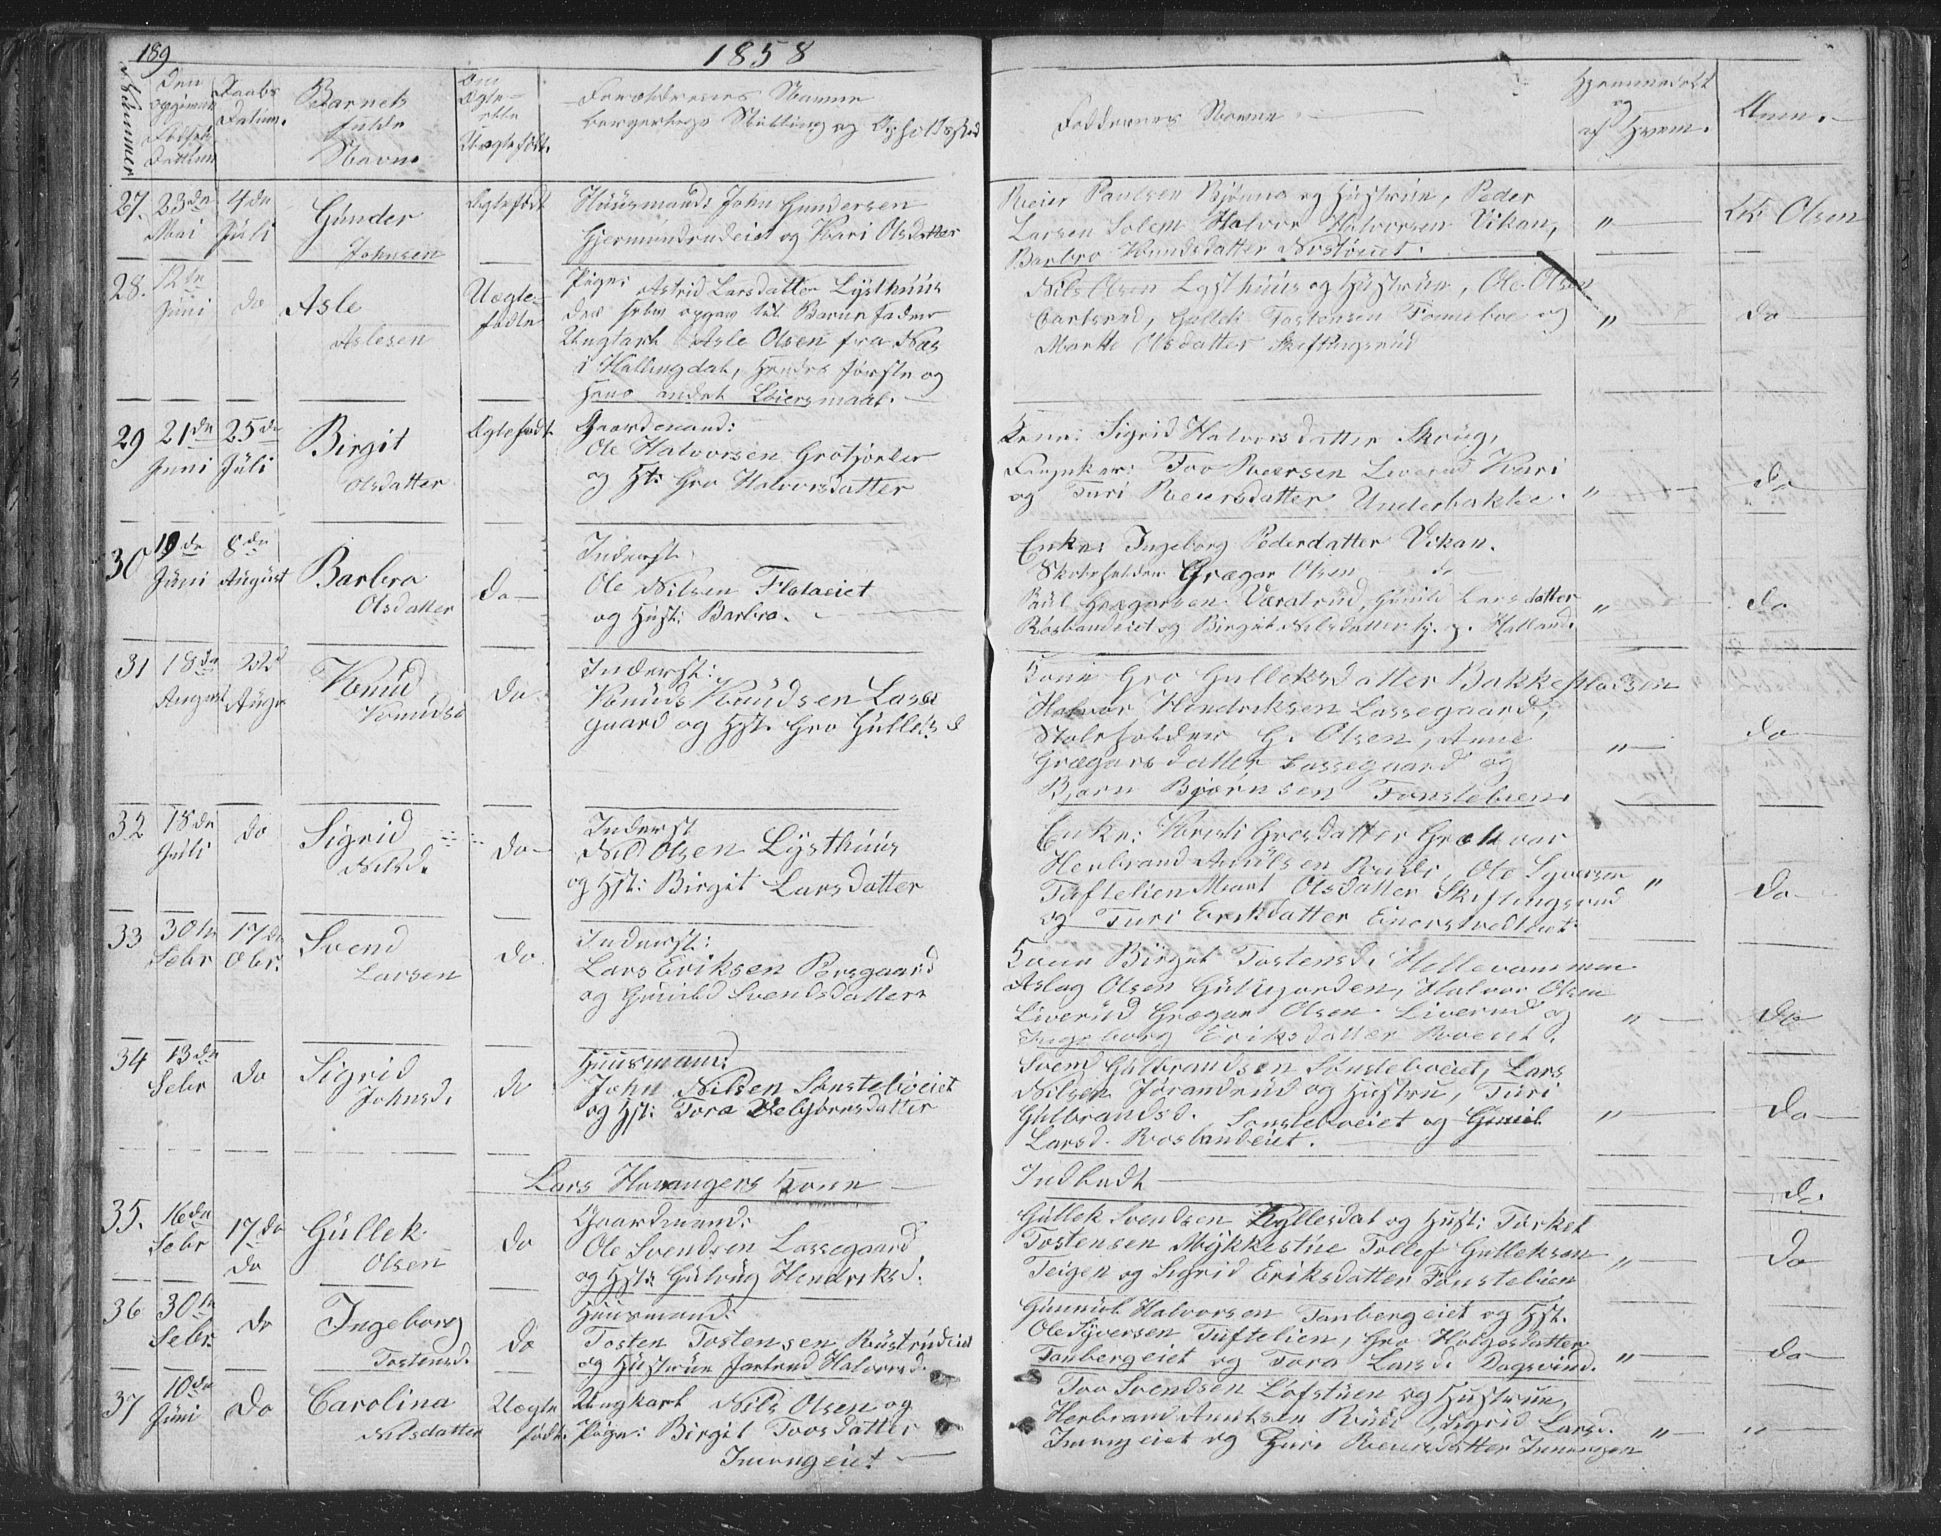 189
1858
Nummer
Den
opgivne
Fødsels
Dattum
Daabs
Datum.
Barnets
fulde
Navn.
Om
Ægte
eller
Uægtefødt.
Forældrenes Navne
borgerlige Stilling og Opholdssted
Faddernes Navne
Hjemmedøbt
og
af Hvem.
Anm.
27. 23de Mai
4de Juli
Gunder
Johnsen
Ægtefødt
Huusmand: John Gundersen
Gjermundrudeiet og Kari Olsdatter
Reier Paulsen Bjønnes og Hustrue, Peder
Larsen Solem Halvor Halvorsen Vikan,
Barbro Knudsdatter
" Olsen
28. 12te Juni
do
Asle
Aslesen
Uægte-
fødte
Pige: Astrid Larsdatter Lysthuus
der selv opgav til Barnefader
Ungkarl Asle Olsen fra Nas
i Hallingdal, Hendes første og
Hans andet Leiersmaal.
Nils Olsen Lysthuus og Hustrue, Ole Olsen
Gullek Tostensen Tonneboe og
Marthe Olsdatter Skiftingsrud
" do
29 21de Juni
25de Juli
Birgit
Olsdatter
Ægtefødt
Gaardmand:
Ole Halvorsen Grotjorden
og Hst: Gro Halvorsdatter
Kone: Sigrid Halvorsdatter Skrug,
Tov Reiersen Liverud Kari
og Turi Reiersdatter Underbakke.
" do
30 19de Juni
8de August
Barbro
Olsdatter
do
Inderst
Ole Nilsen Flataeiet
og Hust: Barbro.
Enke: Ingeborg Pedersdatter Vikan.
Skoleholder Grægar Olsen do
Paul Grægarsen Væralrud, Gunild Larsdatter
Rosbondeiet og Birgit Nilsdatter
" do
31 18de August
22de Augs
Knud
Knuds
do.
Inderst:
Knud Knudsen Lasse
gaard og Hst. Gro Gulleks d
Kone Gro Gulleksdatter Bakkepladsen
Halvor Hendriksen Lassegaard,
Skoleholder G. Olsen, Anne
Grægarsdatter Lassegaard og
Bjørn Bjørnsen Tonslebien.
" do
32 18de Juli
do
Sigrid
Nilsd.
do
Inderst
Nils Olsen Lysthuus
og Hst: Birgit Larsdatter
Enke: Kristi
Herbrand Amutsen Ruud, Ole Syversen
Tuftelien Marit Olsdatter Skiftingsrud
og Turi Eriksdatter
" do
33 30te Sebr
17de Obr.
Svend
Larsen
do.
Inderst:
Lars Eriksen Persgaard
og Gunild Svendsdatter
Kone Birgit Tostensd. Hellevammen
Aslag Olsen Gullegorden, Halvor Olsen
Liverud Grægar Olsen Liverud og
Ingeborg Eriksdatter Roeiet.
" do
34 13de Sebr
do
Sigrid
Johnsd.
do
Huusmand:
John Nilsen Sønsteboeiet
og Hst: Tora Vebjørnsdatter
Svend Gulbrandsen Sønsteboeiet, Lars
Nilsen Jorandrud og Hustru, Turi
Gulbrandsd. Sonsteboeiet og Gunil
Larsd. Rosbondeiet.
" do
Lars Havangers Kone
Indledt
do.
35. 16de Sebr
17de do
Gullek
Olsen
do
Gaardmand:
Ole Svendsen Lassegaard
og Hst: Gulaug Hendriksd.
Gullek Svendsen Kyllesdal og Hust: Torkel
Tostensen Mykkestue Tollef Gulleksen
Teigen og Sigrid Eriksdatter Tønslebien
" do
36 30te Sebr.
do
Ingeborg
Tostensd.
do
Huusmand:
Tosten Tostensen Rustrudeiet
og Hustrue Jartrud Halvorsd.
Gunnul Halvorsen Tanbergeiet og Hst.
Ole Syversen Tuftelien, Gro Holgesdatter
Tanbergeiet og Tora Larsd. Dagsvind.
" do
37 10de Juni
do
Carolina
Nilsdatter
Uægte
født.
Ungkarl Nils Olsen og
Pige: Birgit Toosdatter
Imongeiet
Tov Svendsen Lofstuen og Hustrue,
Herbrand Amutsen Ruud, Sigrid Larsd.
Imongeiet og Guri Reiersdatter Imongen
" "